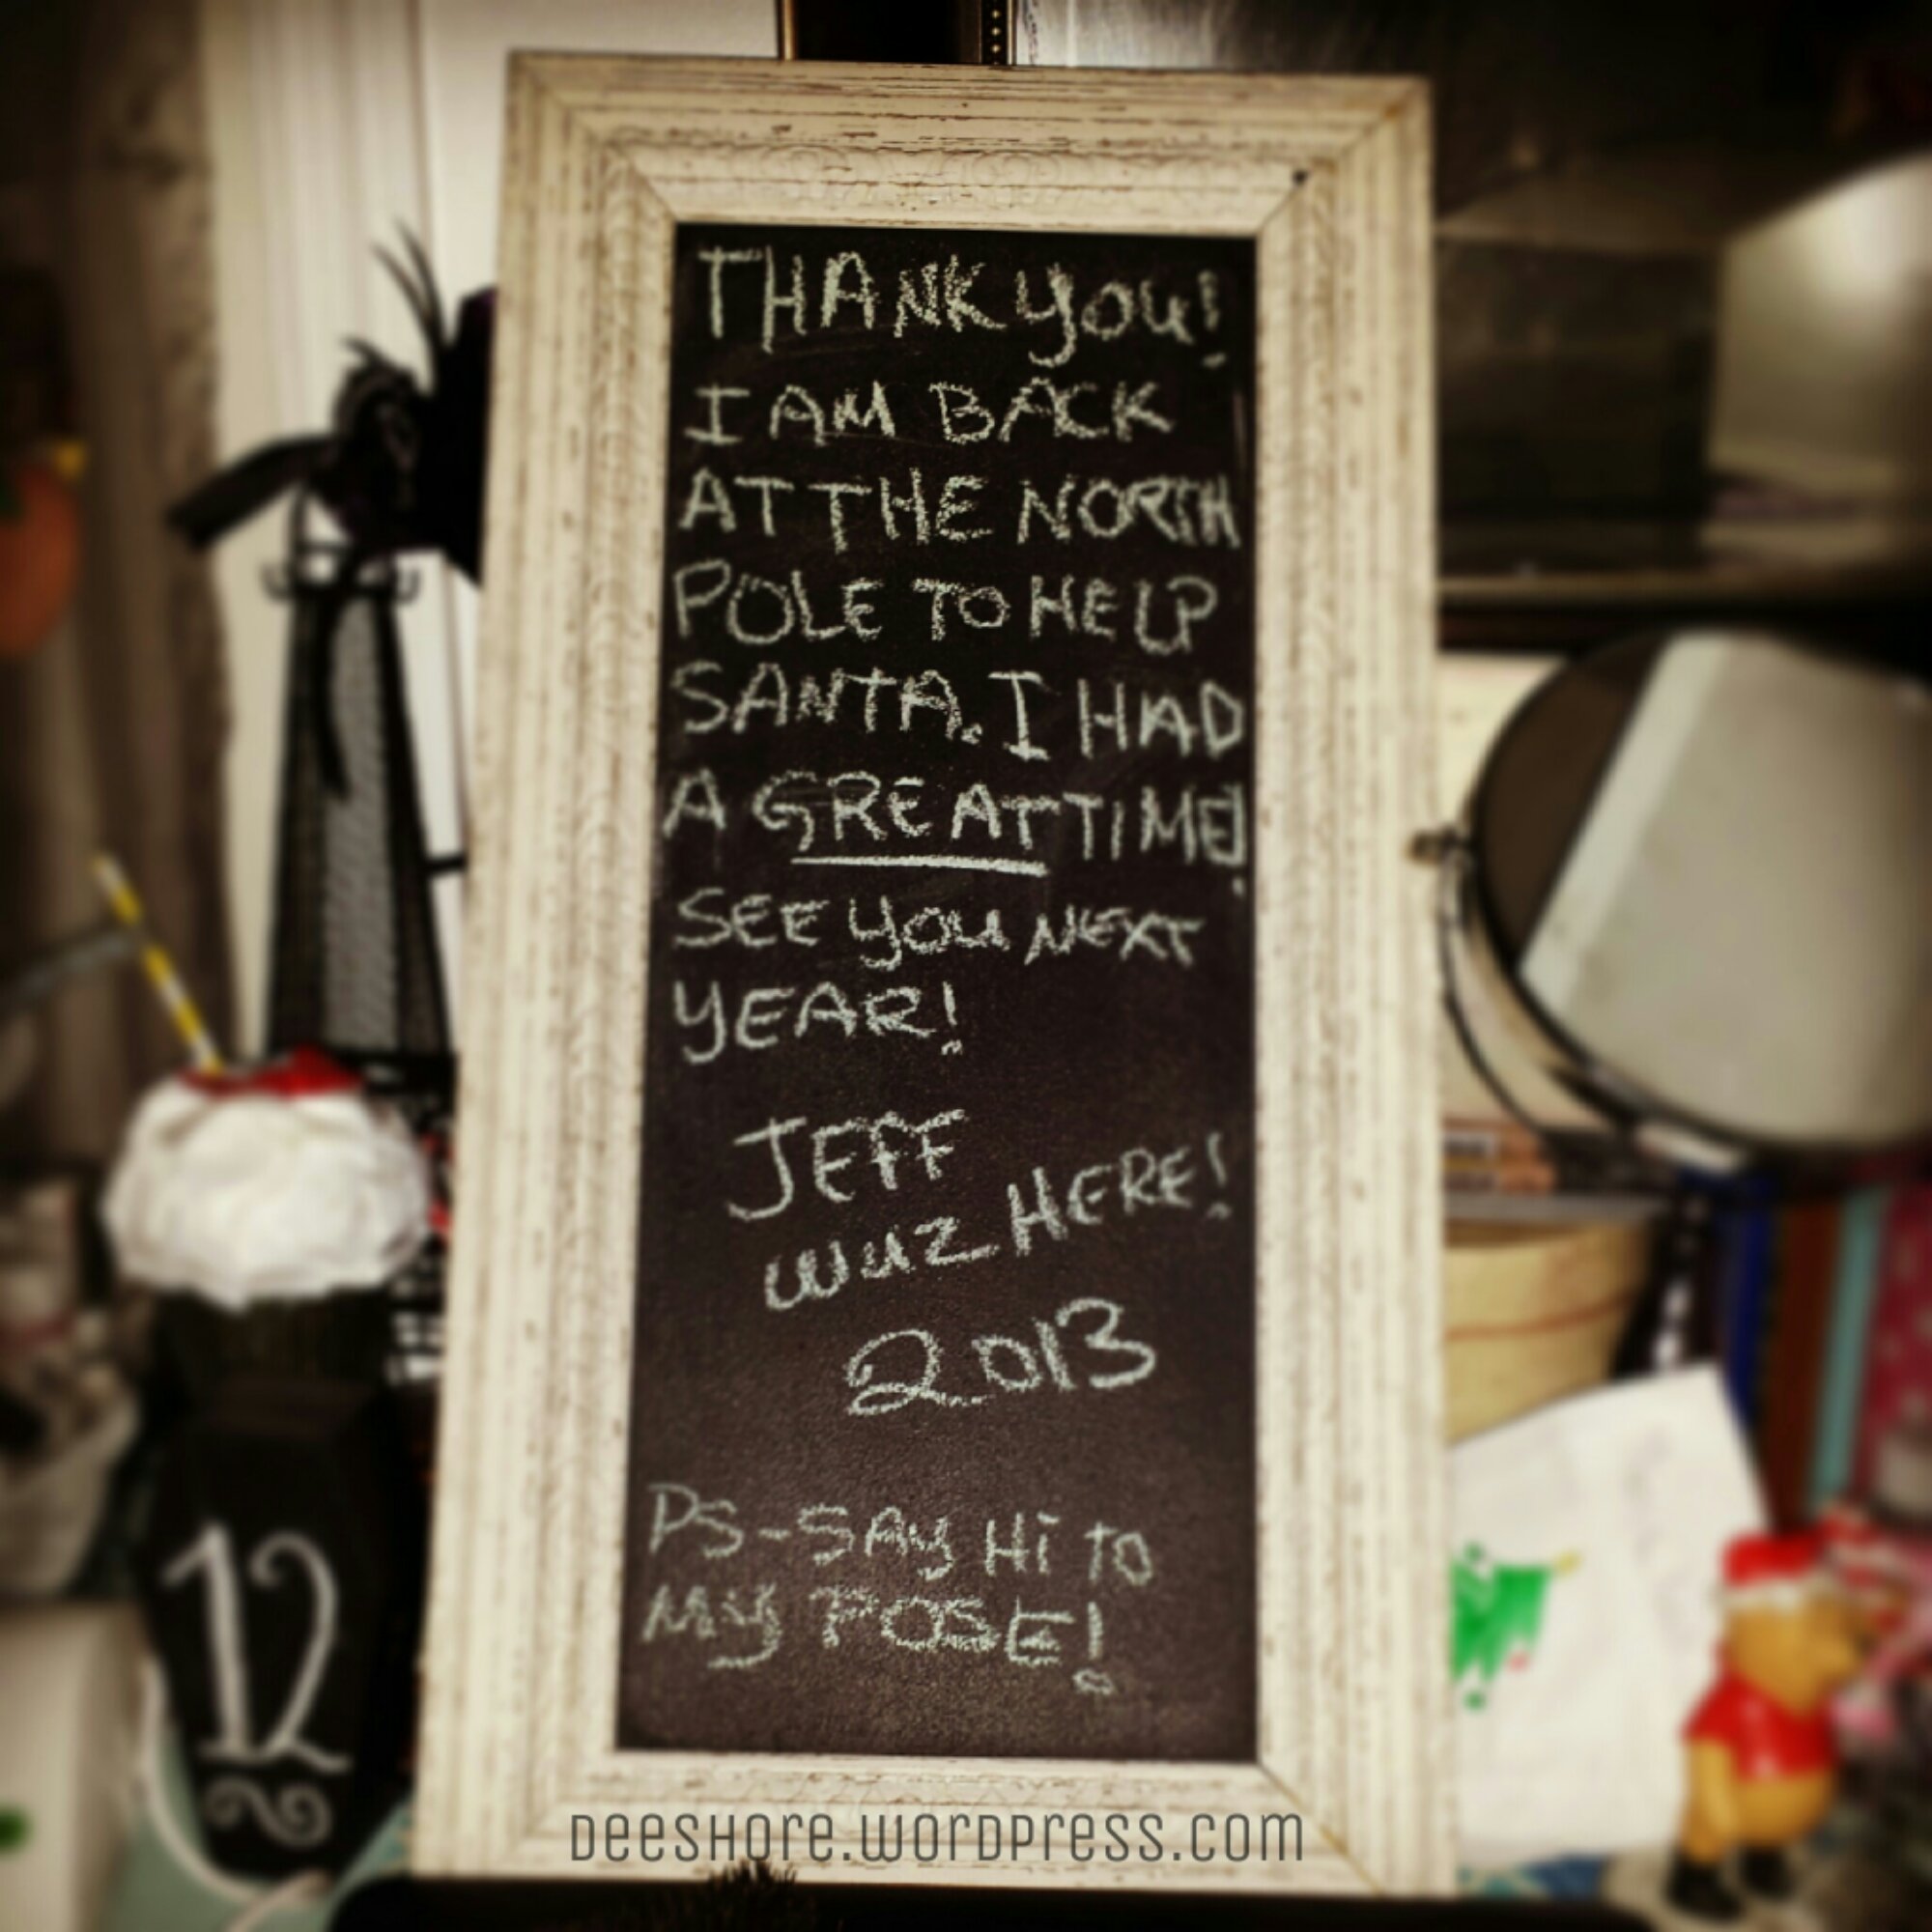 THANK you!
I AM BACK
AT THE NORTH
POLE TO HELP
SANTA. I HAD
A GREAT TIME!
SEE you NEXT
YEAR!
JEFF
WUZ HERE!
2013
PS-SAY Hi TO
My POSE!
12
DeeSHore.worDpress.com